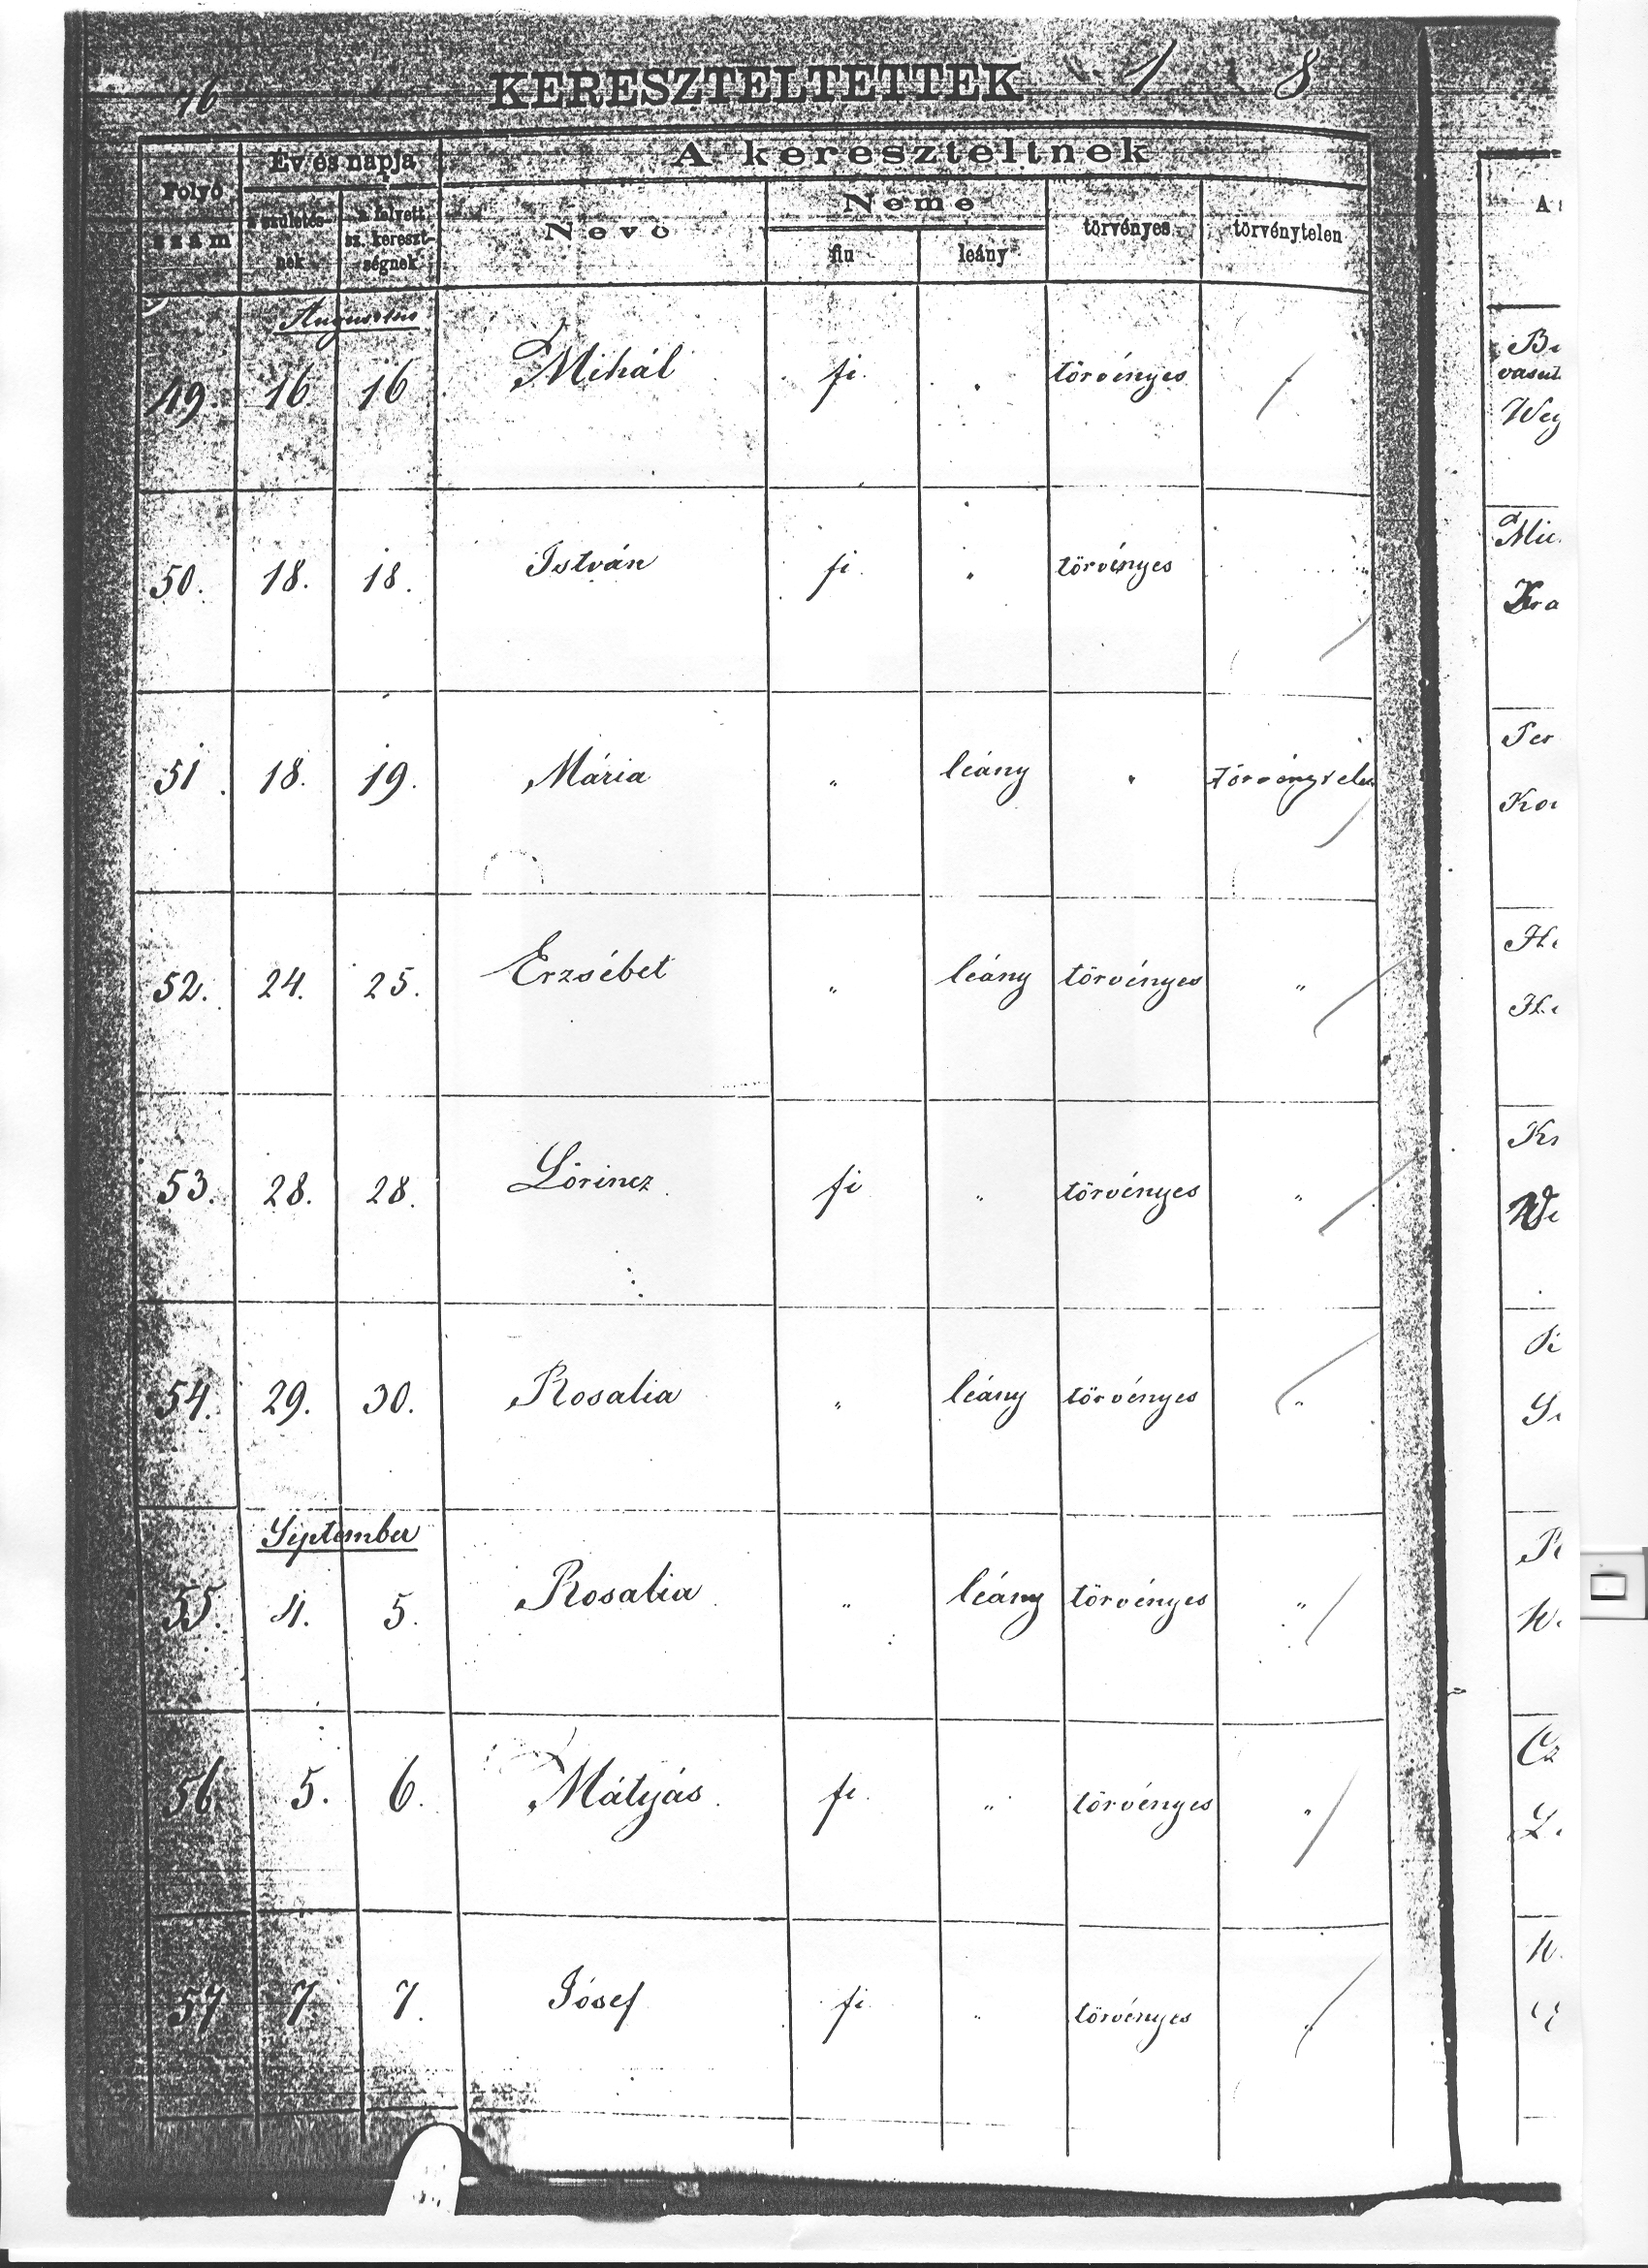 16 KERESZTELTETTEK 1 8
Folyó szám
Év és napja
a születés-
nek
a felvett
sz. kereszt-
ségnek
A kereszteltnek
Neve
Neme
fiu
leány
törvényes
törvénytelen
A
Augustus
49. 16. 16 Mihál fi. törvényes
50. 18. 18. István fi. törvényes
51. 18. 19. Mária " leány " törvénytelen
52. 24. 25. Erzsébet " leány törvényes "
53. 28. 28. Lörincz fi " törvényes "
54. 29. 30. Rosalia " leány törvényes "
September
55. 4. 5. Rosalia " leány törvényes "
56 5. 6. Mátyás fi. " törvényes "
57 7 7. Jósef fi. " törvényes "